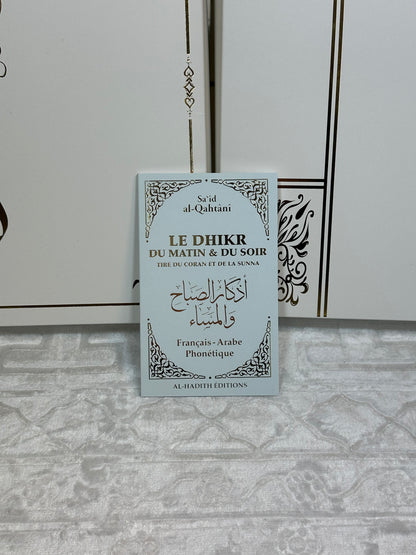 Sa'id
al-Qahtânî
LE DHIKR
DU MATIN & DU SOIR
TIRÉ DU CORAN ET DE LA SUNNA
أذكار الصباح
والمساء
Français - Arabe
Phonétique
AL-HADÎTH ÉDITIONS